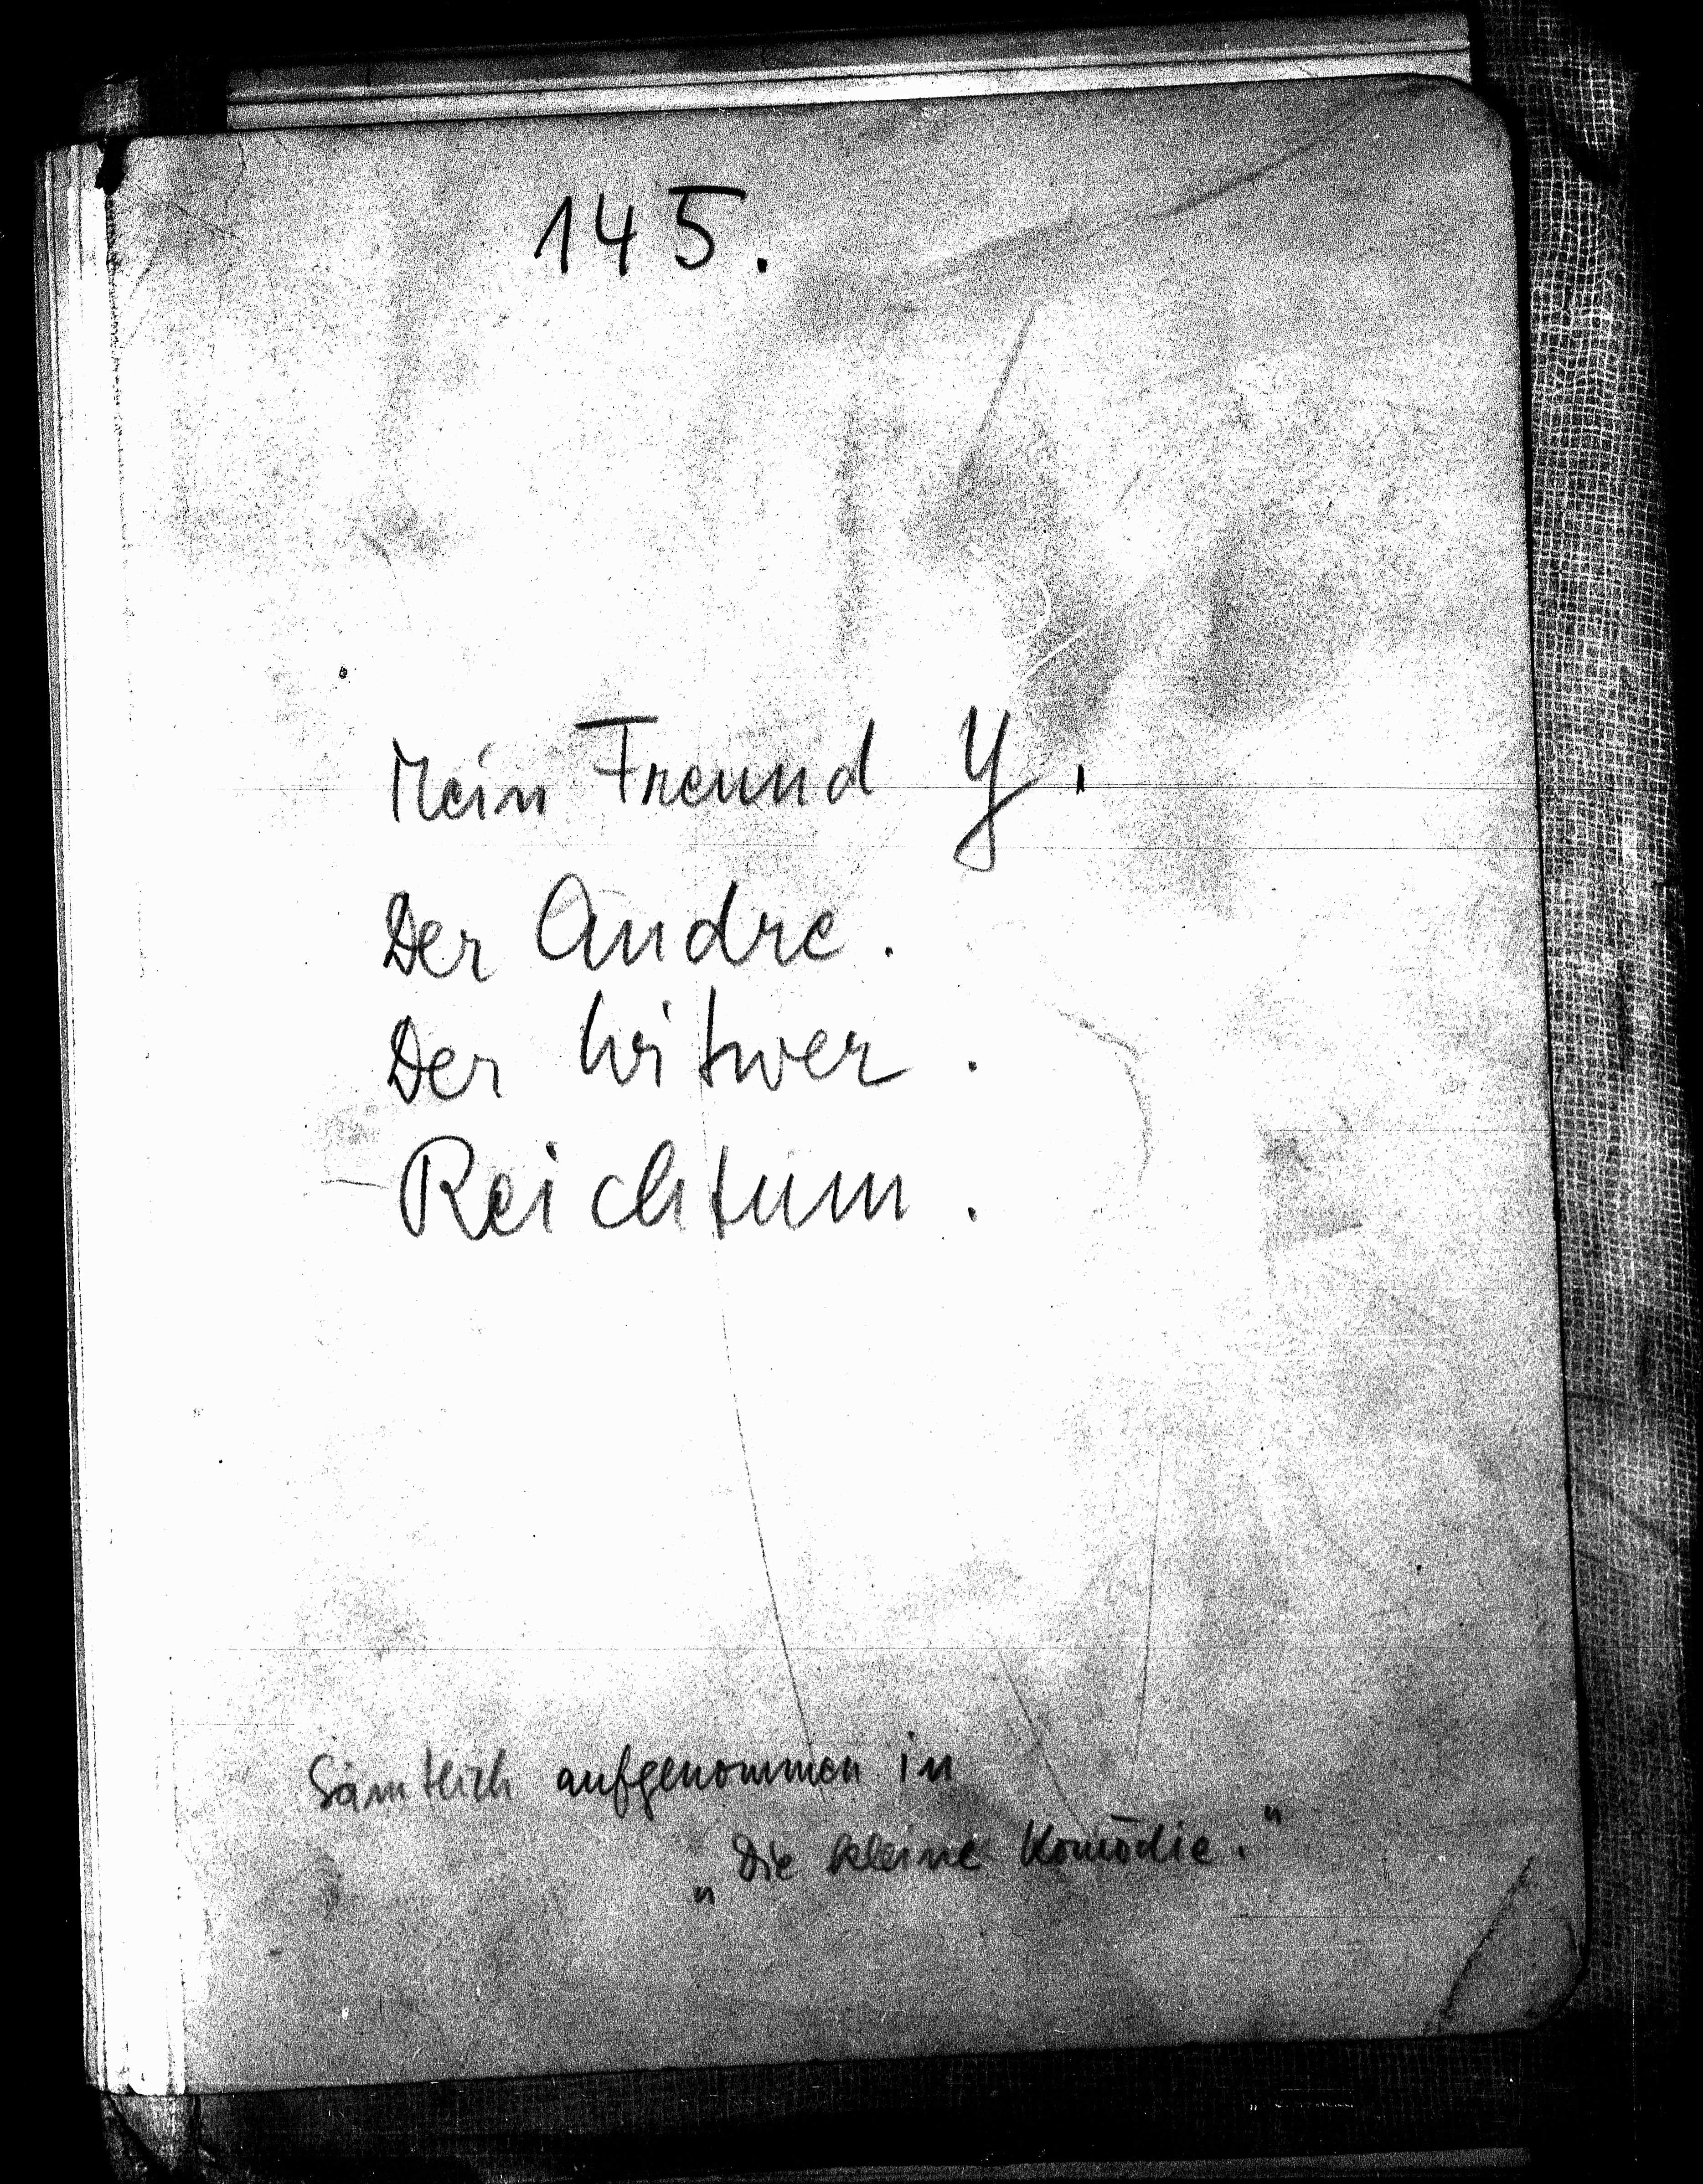 145.
Mein Freund Y.
Der Andre.
Der Witwer.
Reichtum.
Sämtlich aufgenommen in
„Die kleine Komödie."